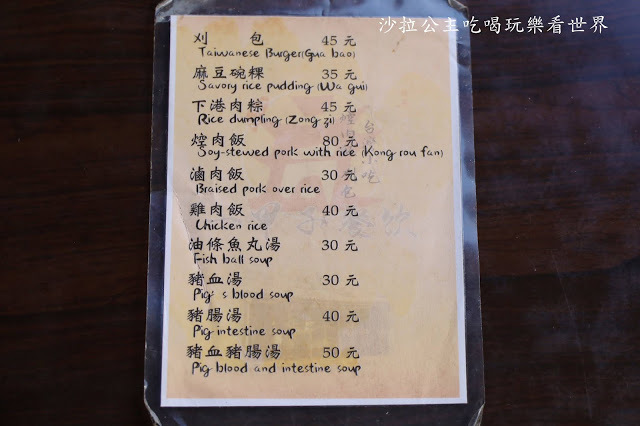 沙拉公主吃喝玩樂看世界
刈 包 45 元
Taiwanese Burger(Gua bao)
麻豆碗粿 35 元
Savory rice pudding (Wa gui)
下港肉粽 45 元
Rice dumpling (Zong zi)
焢肉飯 80 元
Soy-stewed pork with rice (Kong rou fan)
滷肉飯 30 元
Braised pork over rice
雞肉飯 40 元
Chicken rice
油條魚丸湯 30 元
Fish ball soup
豬血湯 30 元
Pig's blood soup
豬腸湯 40 元
Pig intestine soup
豬血豬腸湯 50 元
Pig blood and intestine soup